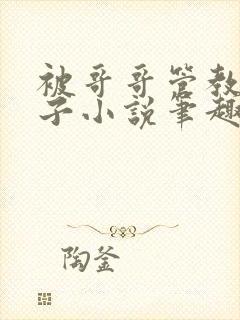 被哥哥管教
子小说笔趣
陶釜